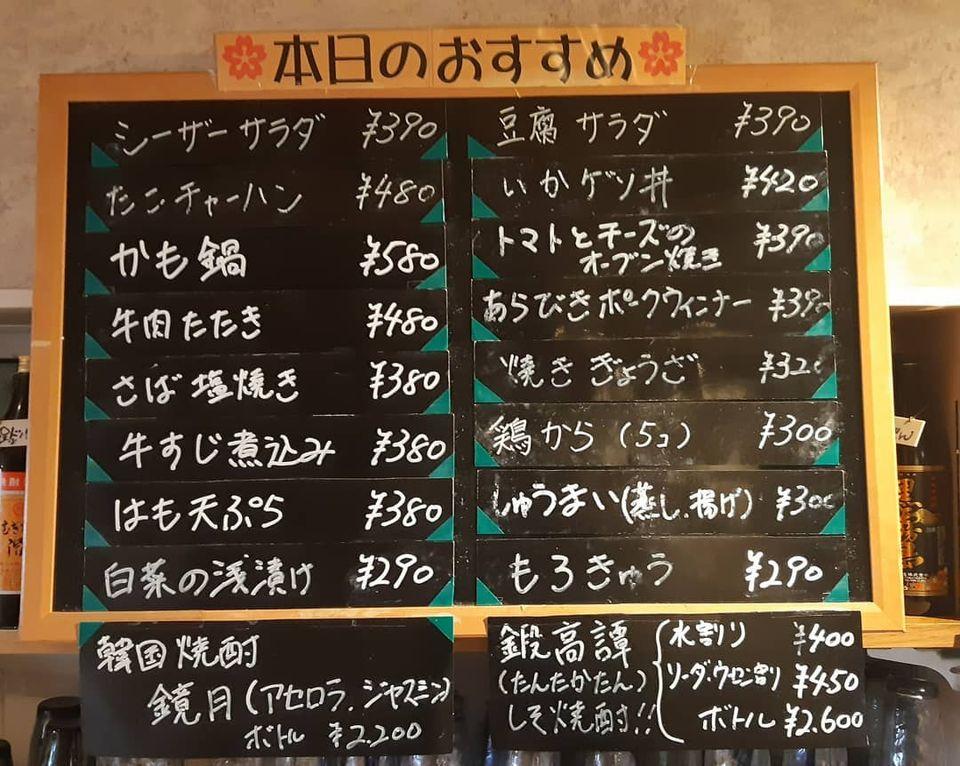 本日のおすすめ
シーザーサラダ ¥390
たこチャーハン ¥480
かも鍋 ¥580
牛肉たたき ¥480
さば塩焼き ¥380
牛すじ煮込み ¥380
はも天ぷら ¥380
白菜の浅漬け ¥290
豆腐サラダ ¥390
いかゲソ丼 ¥420
トマトとチーズの
オーブン焼き ¥390
あらびきポークウィンナー ¥390
焼きぎょうざ ¥320
鶏から(5コ) ¥300
しゅうまい(蒸し.揚げ) ¥300
もろきゅう ¥290
韓国焼酎
鏡月(アセロラ.ジャスミン)
ボトル ¥2.200
鍛高譚
(たんたかたん)
しそ焼酎!!
水割り ¥400
ソーダ.ウーロン割り ¥450
ボトル ¥2.600